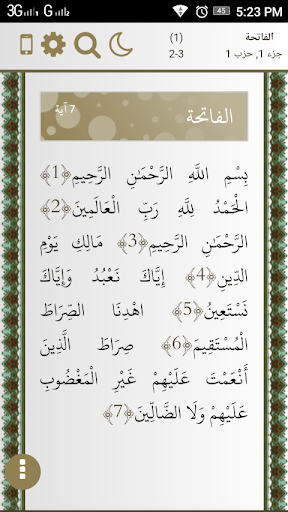 3G G 45 5:23 PM
الفاتحة
(1)
جزء 1, حزب 1
2-3
الفاتحة
7 آية
بِسْمِ اللَّهِ الرَّحْمَٰنِ الرَّحِيمِ ﴿1﴾
الْحَمْدُ لِلَّهِ رَبِّ الْعَالَمِينَ ﴿2﴾
الرَّحْمَٰنِ الرَّحِيمِ ﴿3﴾ مَالِكِ يَوْمِ
الدِّينِ ﴿4﴾ إِيَّاكَ نَعْبُدُ وَإِيَّاكَ
نَسْتَعِينُ ﴿5﴾ اهْدِنَا الصِّرَاطَ
الْمُسْتَقِيمَ ﴿6﴾ صِرَاطَ الَّذِينَ
أَنْعَمْتَ عَلَيْهِمْ غَيْرِ الْمَغْضُوبِ
عَلَيْهِمْ وَلَا الضَّالِّينَ ﴿7﴾